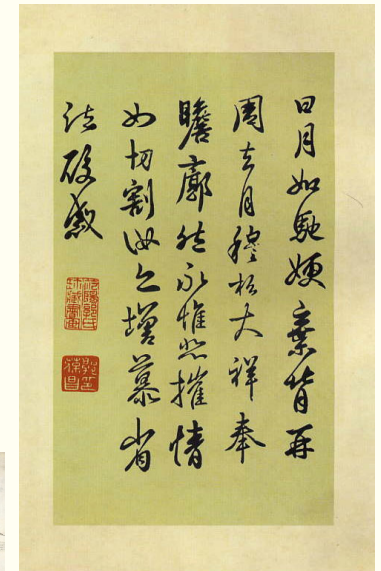 日月如馳嫂棄背再
周去月穆松大祥奉
瞻廓然永惟悲摧情
如切割汝亦增慕省
酸感